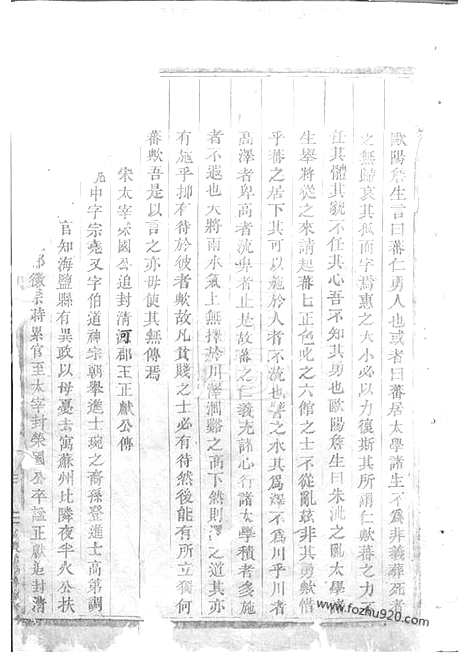 歐陽詹生言曰蕃仁勇人也或者曰蕃居太學諸生不為非義葬死者
之無歸哀其孤而字焉惠之大小必以力復斯其所謂仁歟蕃之力不
任其體其貌不任其心吾不知其勇也歐陽詹生曰朱泚之亂太學
生舉將從之來請起蕃蕃正色叱之六館之士不從亂茲非其勇歟惜
乎蕃之居下其可以施於人者不流也譬之水其為澤不為川乎川者
高澤者卑高者流卑者止是故蕃之仁義充諸心行諸太學積者多施
者不遐也天將雨水氣上無擇於川澤澗谿之高下然則澤之道其亦
有施乎抑有待於彼者歟故凡貧賤之士必有待然後能有所立獨何
蕃歟吾是以言之亦毋使其無傳焉
宋太宰榮國公追封清河郡王正獻公傳
中字宗堯又字伯道神宗朝舉進士琬之裔孫登進士高第調
官知海鹽縣有異政以母憂去寓蘇州比隣夜半火公扶
徽宗時累官至太宰封榮國公卒謚正獻追封清
www.fozhu920.com